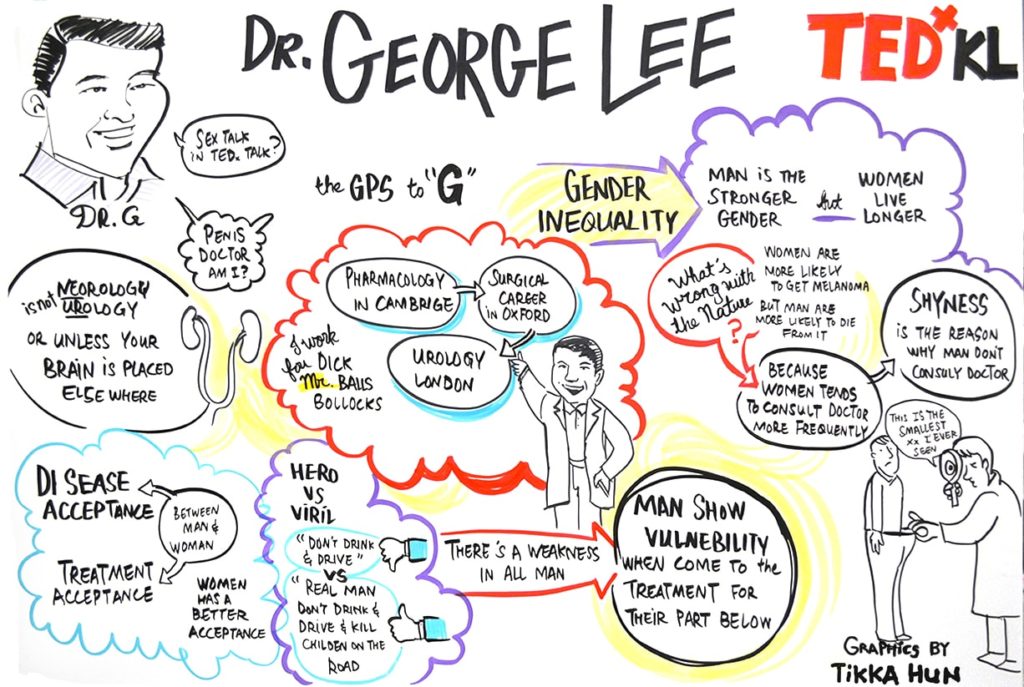 DR. GEORGE LEE
TEDxKL
DR. G
SEX TALK
IN TEDx TALK?
PENIS
DOCTOR
AM I?
the GPS to "G"
GENDER
INEQUALITY
MAN IS THE
STRONGER
GENDER
but
WOMEN
LIVE
LONGER
is not NEOROLOGY
UROLOGY
OR UNLESS YOUR
BRAIN IS PLACED
ELSE WHERE
PHARMACOLOGY
IN CAMBRIGE
SURGICAL
CAREER
IN OXFORD
UROLOGY
LONDON
I work
for DICK
Mr. BALLS
BOLLOCKS
What's
wrong with
the Nature
?
WOMEN ARE
MORE LIKELY
TO GET MELANOMA
BUT MAN ARE
MORE LIKELY TO DIE
FROM IT
BECAUSE
WOMEN TENDS
TO CONSULT DOCTOR
MORE FREQUENTLY
SHYNESS
IS THE REASON
WHY MAN DON'T
CONSULY DOCTOR
THIS IS THE
SMALLEST
xx I EVER
SEEN
DISEASE
ACCEPTANCE
BETWEEN
MAN &
WOMAN
TREATMENT
ACCEPTANCE
WOMEN
HAS A
BETTER
ACCEPTANCE
HERO
VS
VIRIL
"DON'T DRINK
& DRIVE"
VS
"REAL MAN
DON'T DRINK &
DRIVE & KILL
CHILDEN ON THE
ROAD
THERE'S A WEAKNESS
IN ALL MAN
MAN SHOW
VULNEBILITY
WHEN COME TO the
TREATMENT FOR
THEIR PART BELOW
GRAPHICS BY
TIKKA HUN